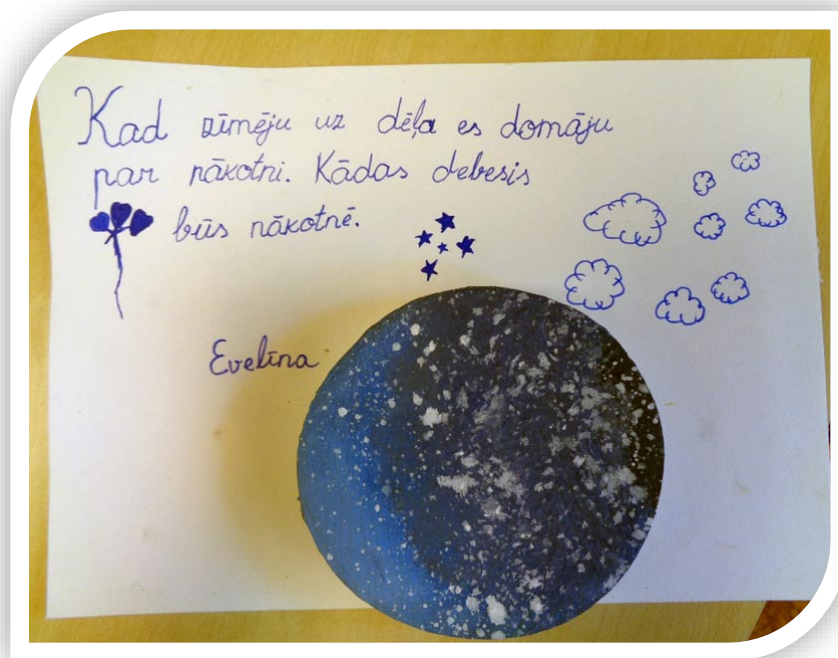 Kad zīmēju uz dēļa es domāju
par nākotni. Kādas debesis
būs nākotnē.
Evelīna